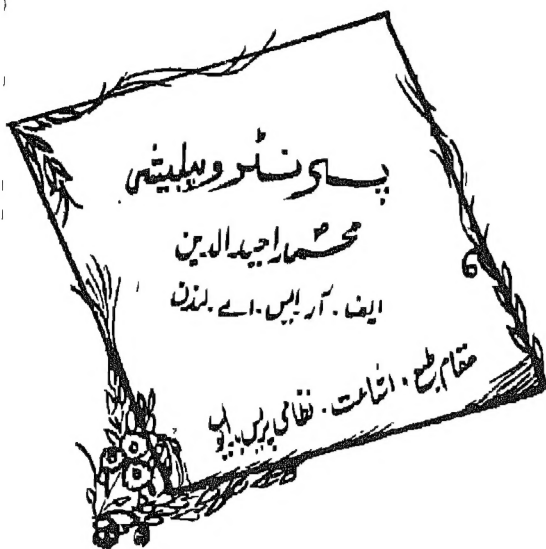 پرنٹر و پبلیشر
محمد احید الدین
ایف . آر . ایس . اے . لنڈن
مقام طبع و اشاعت . نظامی پریس بدایوں